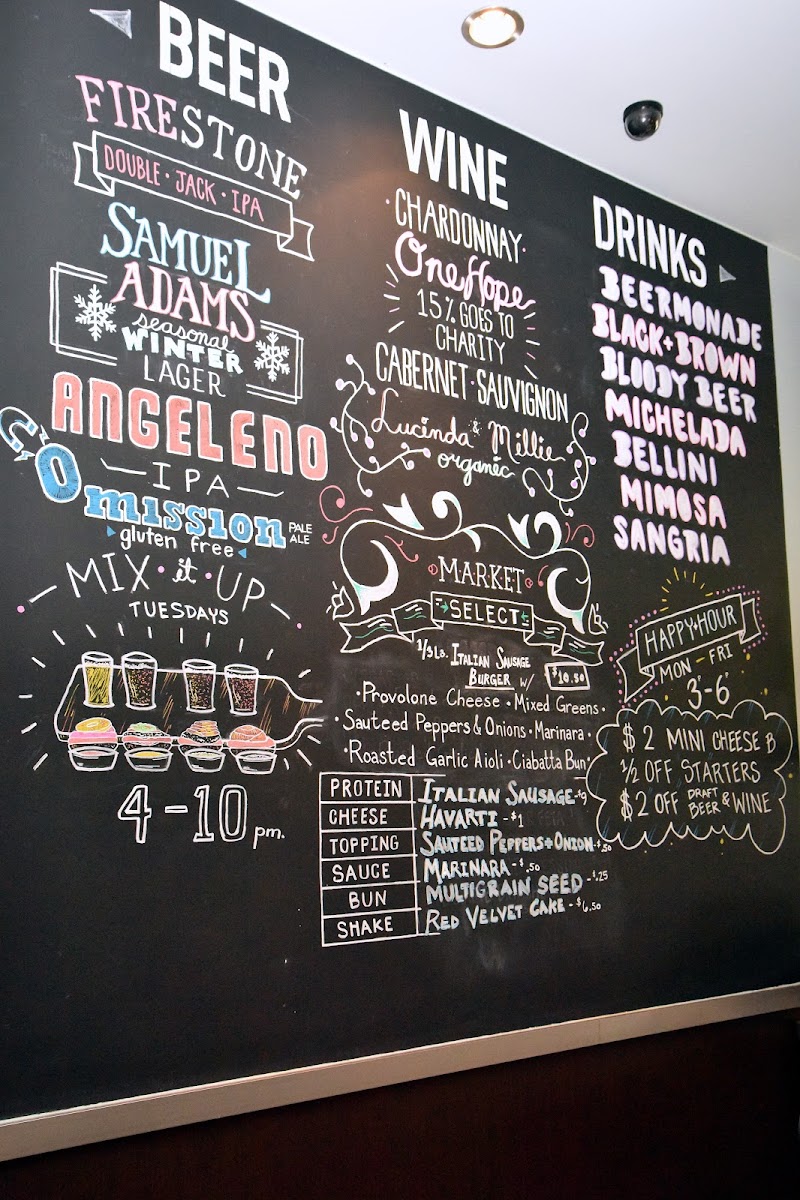 BEER
FIRESTONE
DOUBLE · JACK · IPA
SAMUEL
ADAMS
seasonal
WINTER
LAGER
ANGELENO
IPA
Omission PALE ALE
gluten free
MIX · it · UP
TUESDAYS
4-10 pm.
WINE
· CHARDONNAY ·
OneHope
15% GOES TO
CHARITY
CABERNET · SAUVIGNON
Lucinda & Millie
organic
MARKET
SELECT
1/3 LB. ITALIAN SAUSAGE
BURGER W/ $10.50
· Provolone Cheese · Mixed Greens ·
· Sauteed Peppers & Onions · Marinara ·
· Roasted Garlic Aioli · Ciabatta Bun ·
PROTEIN ITALIAN SAUSAGE - $9
CHEESE HAVARTI - $1
TOPPING SAUTEED PEPPERS + ONION - $.50
SAUCE MARINARA - $.50
BUN MULTIGRAIN SEED - $.25
SHAKE RED VELVET CAKE - $6.50
DRINKS
BEERMONADE
BLACK + BROWN
BLOODY BEER
MICHELADA
BELLINI
MIMOSA
SANGRIA
HAPPY · HOUR
MON - FRI
3-6
$2 MINI CHEESE B
1/2 OFF STARTERS
$2 OFF DRAFT BEER & WINE